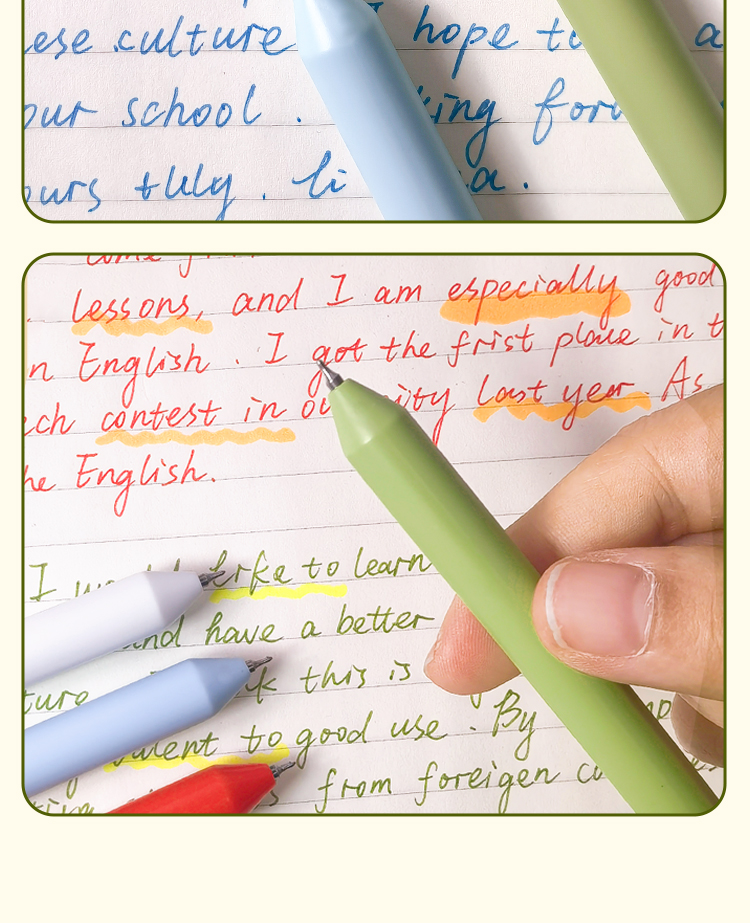 ese culture I hope to a
our school . king forw
ours tuly . li a.
lessons, and I am especially good
n English . I got the frist place in t
ch contest in ou ity last year. As
he English.
I to learn
and have a better
ture k this is
to good use . By
from foreigen cu